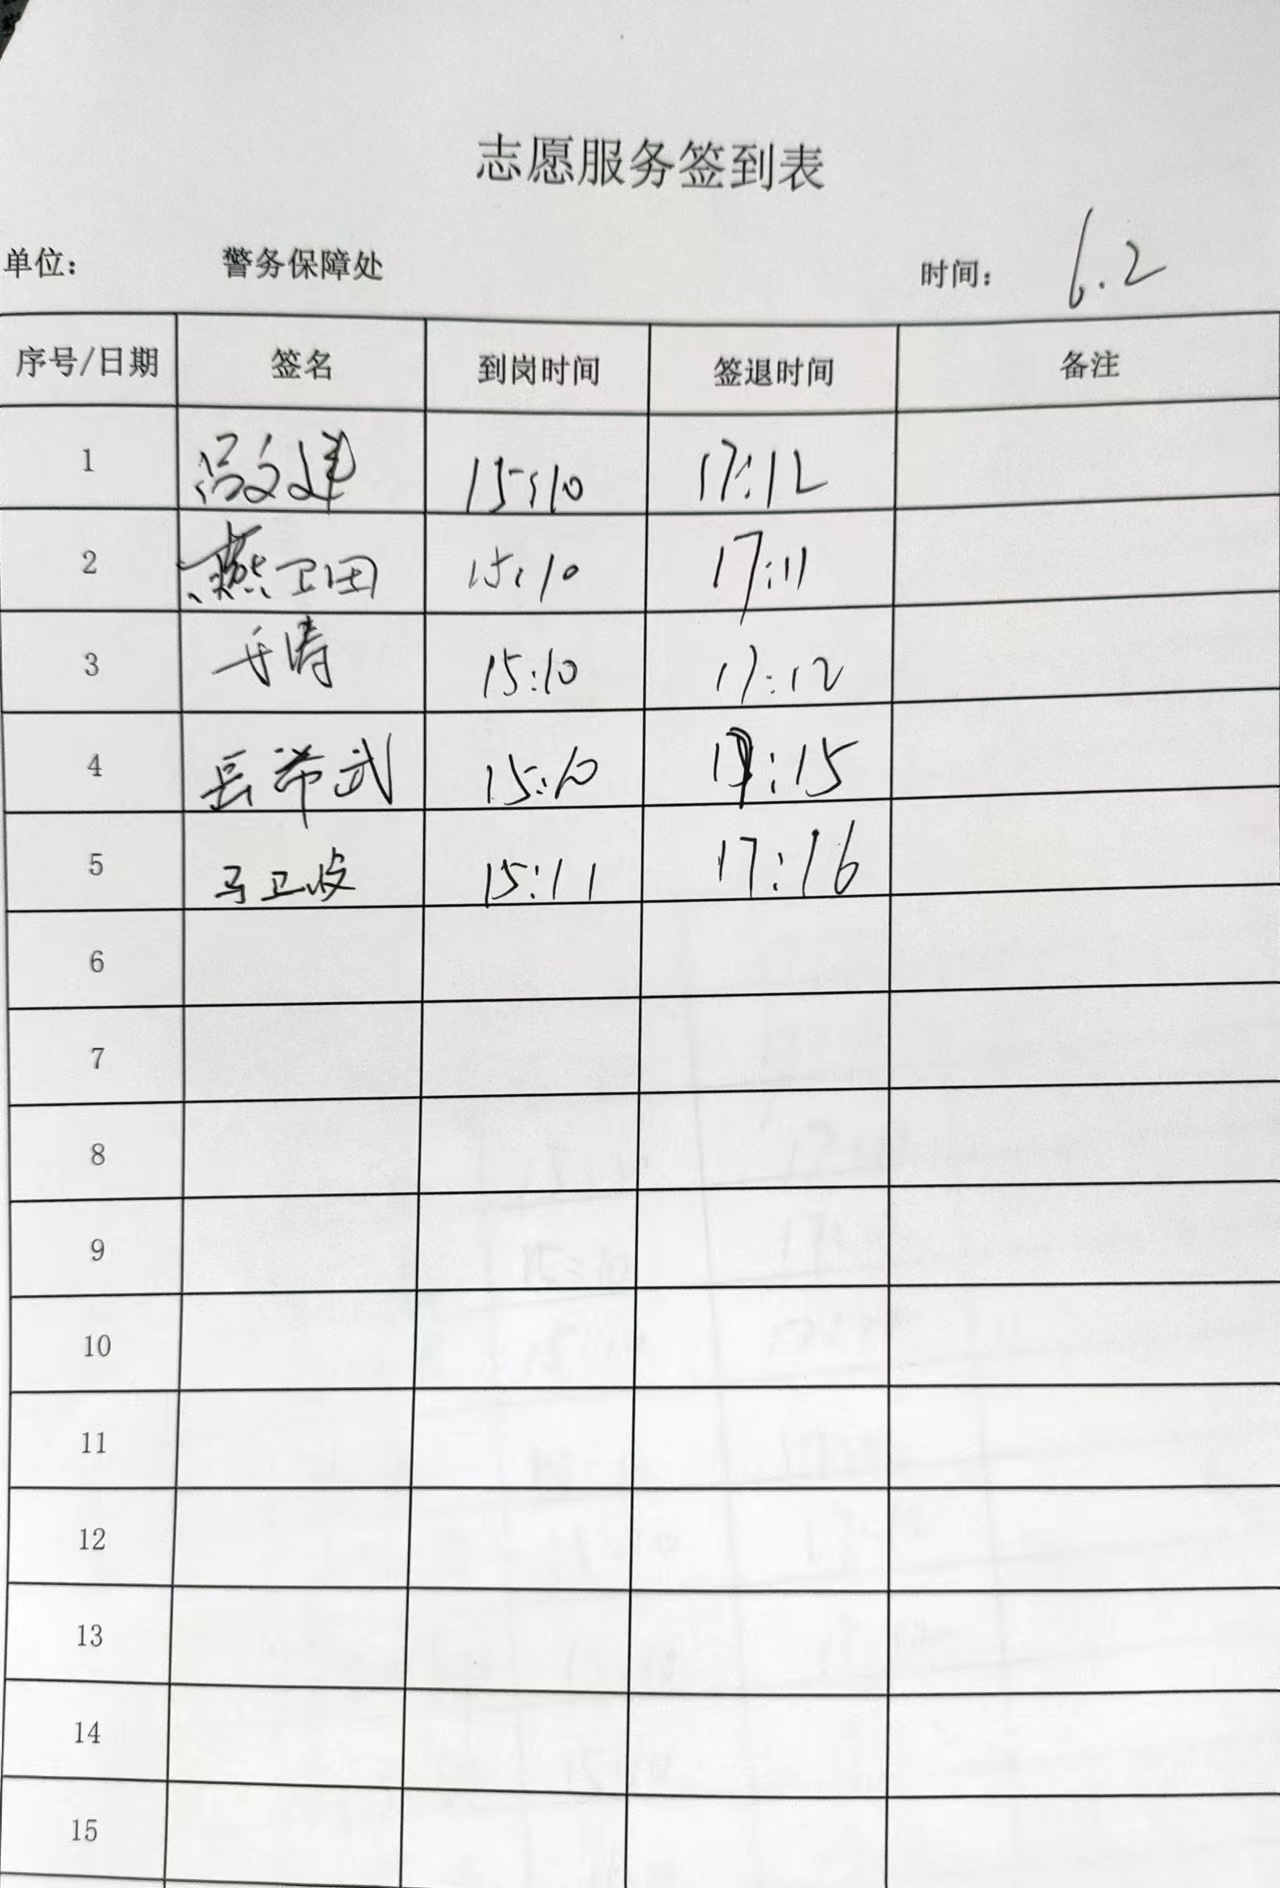 志愿服务签到表
单位： 警务保障处 时间： 6.2
序号/日期 签名 到岗时间 签退时间 备注
1 冯文建 15:10 17:12
2 燕卫田 15:10 17:11
3 于涛 15:10 17:12
4 岳希武 15:10 17:15
5 马卫 15:11 17:16
6
7
8
9
10
11
12
13
14
15